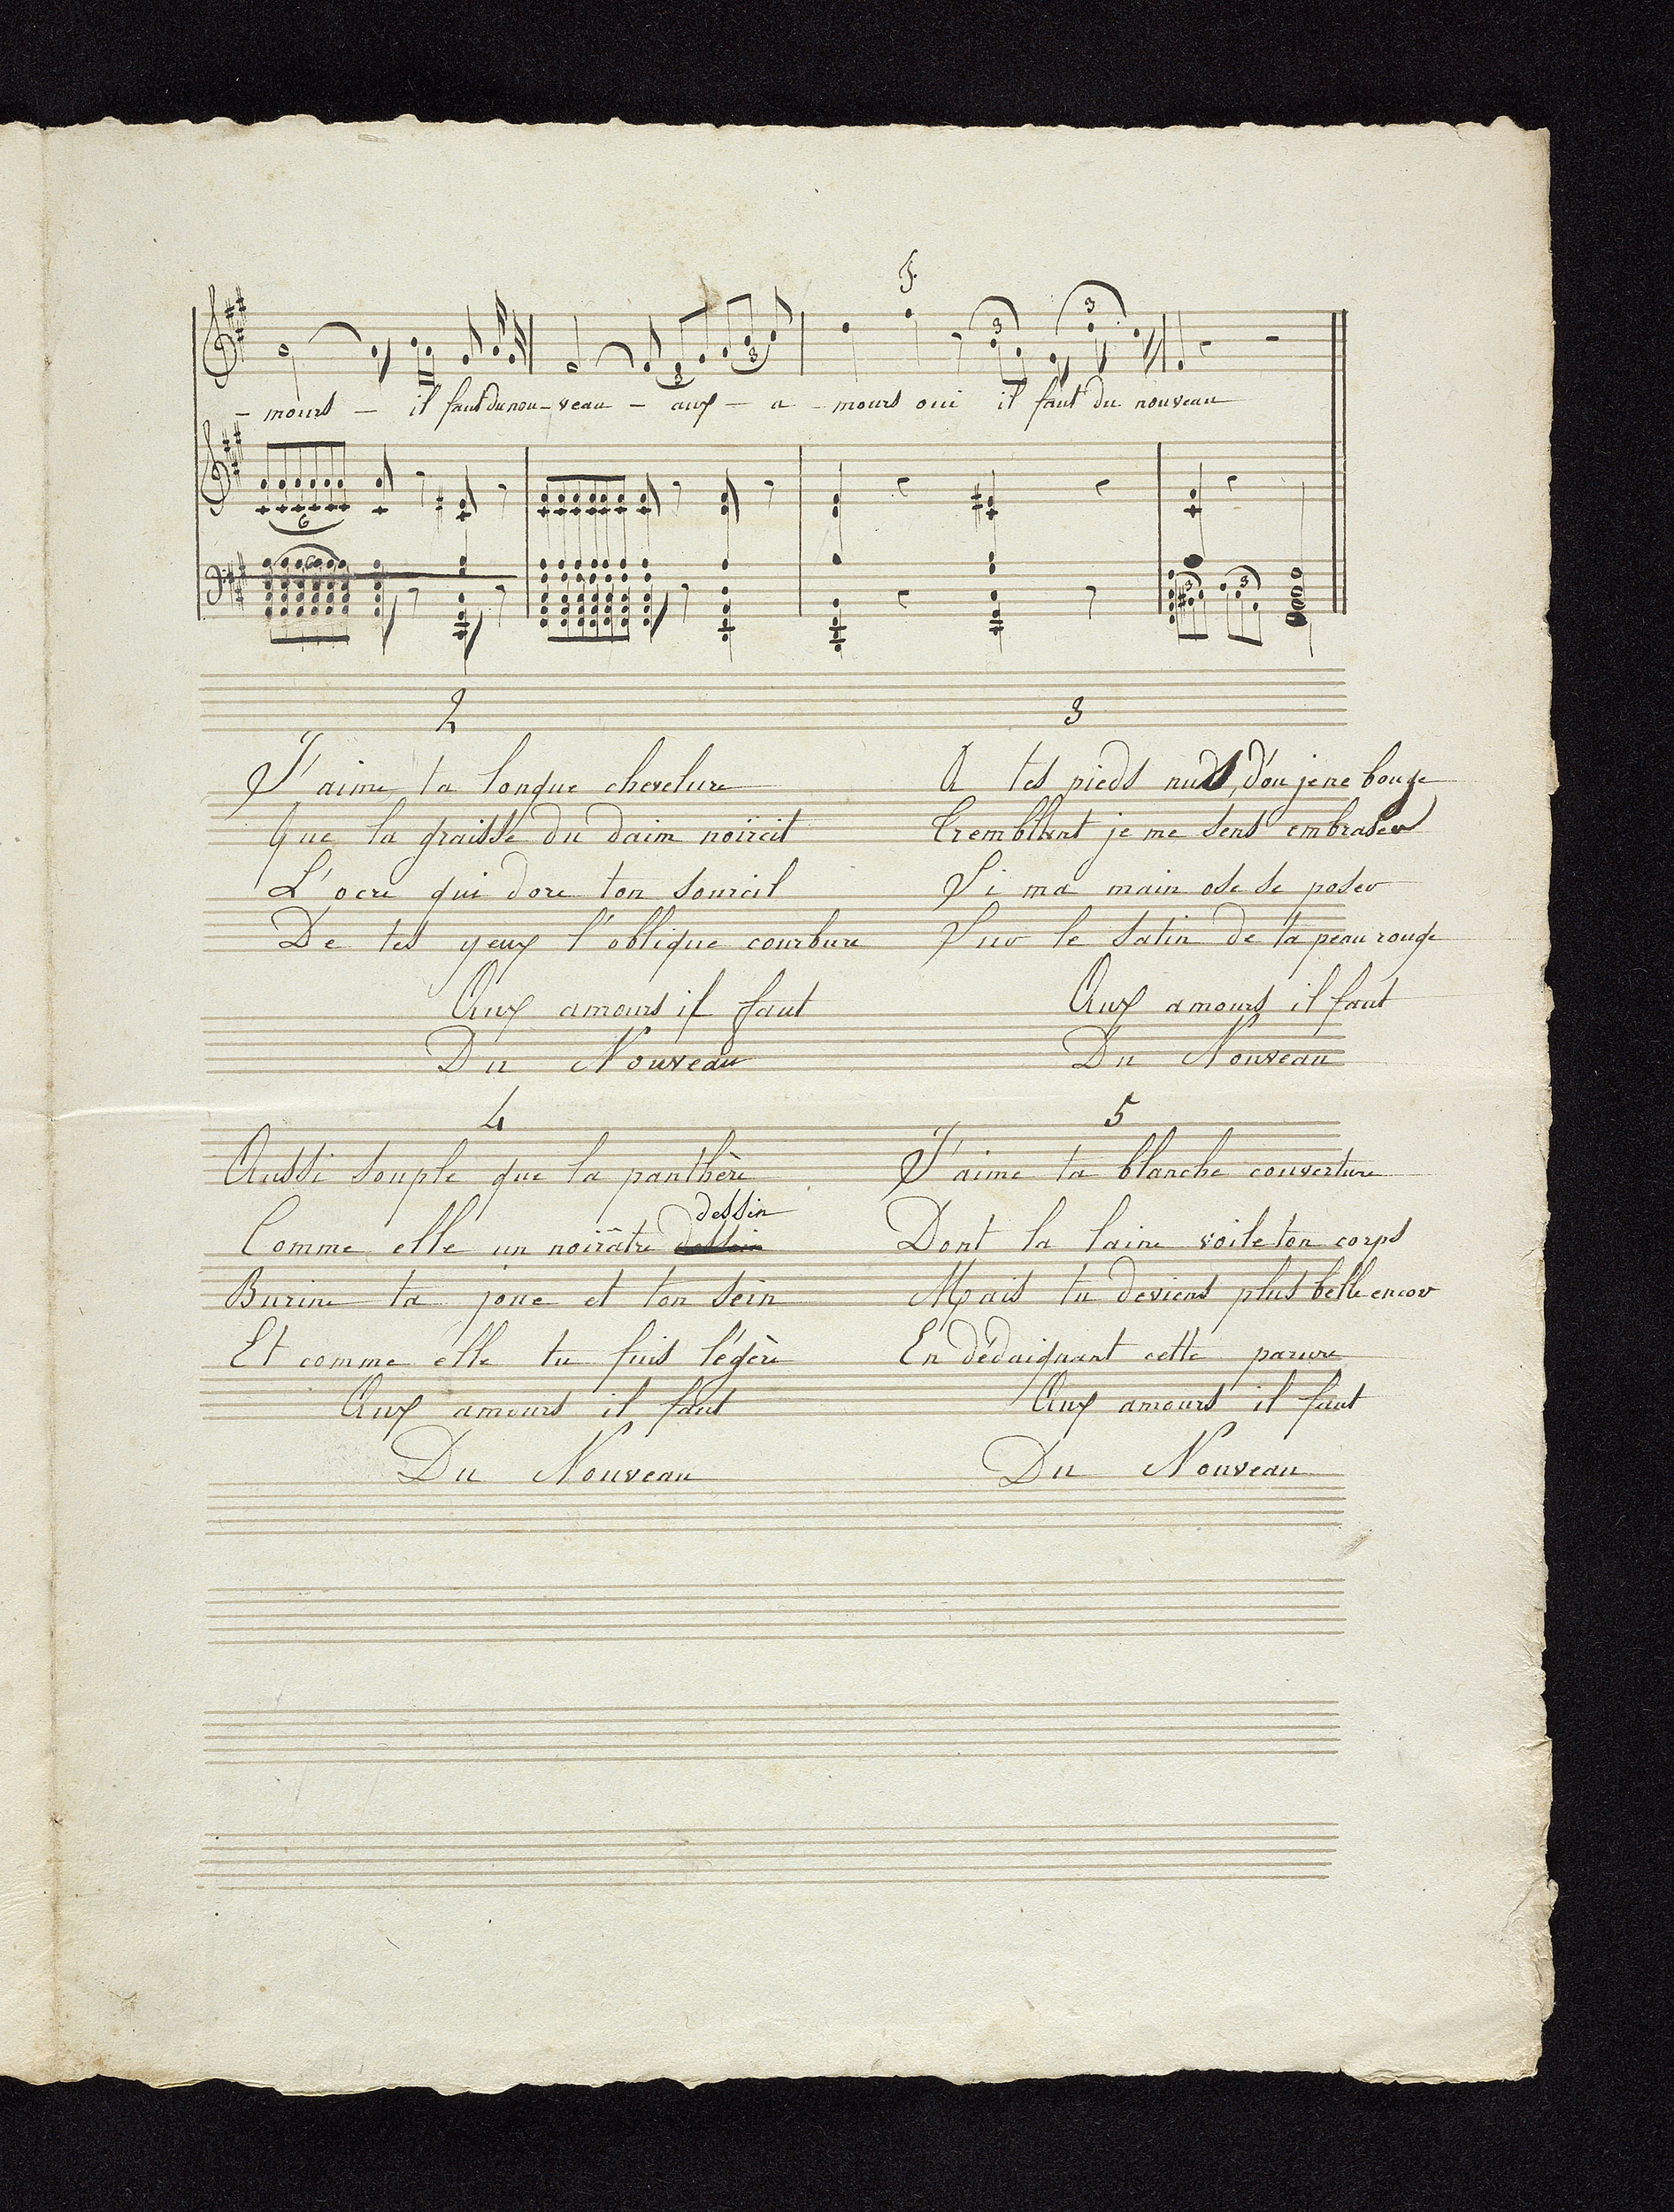 - mours - il faut du nou - veau - aux - a - mours oui il faut du nouveau
2
J'aime ta longue chevelure
Que la graisse du daim noircit
L'ocre qui dore ton sourcil
De tes yeux l'oblique courbure
Aux amours il faut
Du Nouveau
3
A tes pieds nuds, d'ou je ne bouge
Tremblant je me sens embraser
Si ma main ose se poser
Sur le satin de ta peau rouge
Aux amours il faut
Du Nouveau
4
Aussi souple que la panthère
dessin
Comme elle un noirâtre
Burine ta joue et ton sein
Et comme elle tu fuis légère
Aux amours il faut
Du Nouveau
5
J'aime ta blanche couverture
Dont la laine voile ton corps
Mais tu deviens plus belle encor
En dédaignant cette parure
Aux amours il faut
Du Nouveau